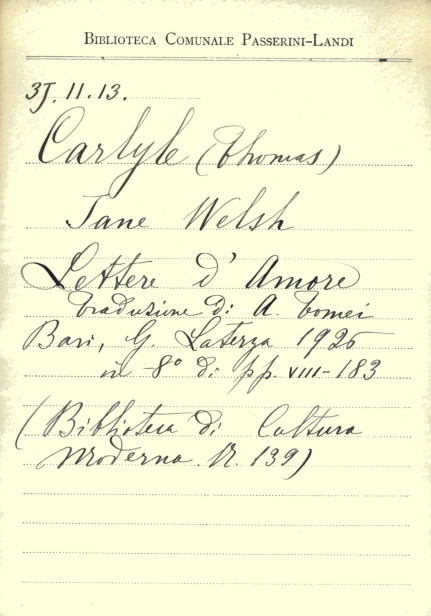 BIBLIOTECA COMUNALE PASSERINI-LANDI
3J. 11. 13.
Carlyle (Thomas)
Jane Welsh
Lettere d'Amore
traduzione di A. Tomei
Bari, G. Laterza 1925
in -8° di pp. VIII-183
(Biblioteca di Cultura
Moderna. N. 139)